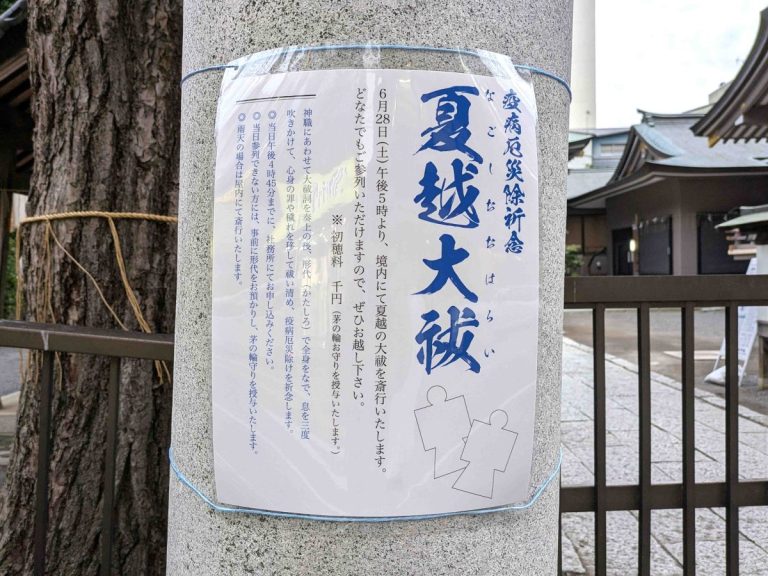 疫病厄災除祈念
なごしおおはらい
夏越大祓
6月28日(土)午後5時より、境内にて夏越の大祓を斎行いたします。
どなたでもご参列いただけますので、ぜひお越し下さい。
※ 初穂料 千円(茅の輪お守りを授与いたします。)
神職にあわせて大祓詞を奏上の後、形代(かたしろ)で全身をなで、息を三度
吹きかけて、心身の罪や穢れを移して祓い清め、疫病厄災除けを祈念します。
◎ 当日午後4時45分までに、社務所にてお申し込みください。
◎ 当日参列できない方には、事前に形代をお預かりし、茅の輪守りを授与いたします。
◎ 雨天の場合は屋内にて斎行いたします。